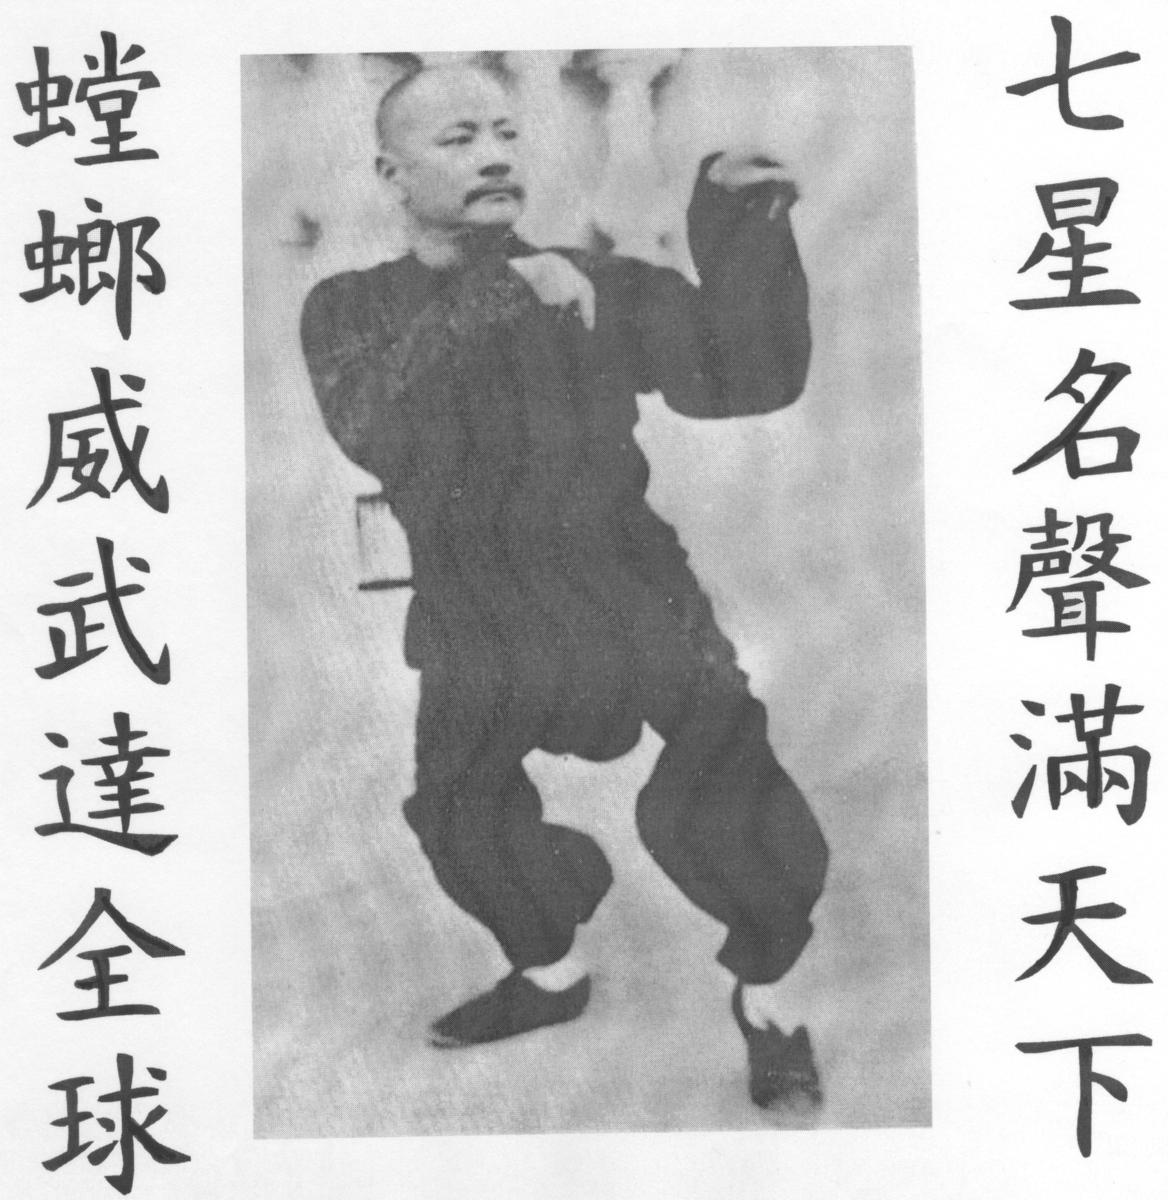 七星名聲滿天下
螳螂威武達全球